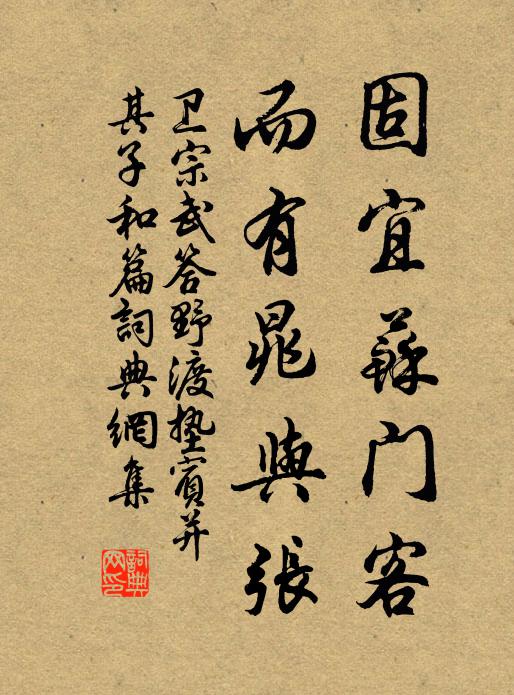 固宜蘇门客
而有晁與張
卫宗武答野渡塾賓并
其子和篇詞典網集
詞典網印